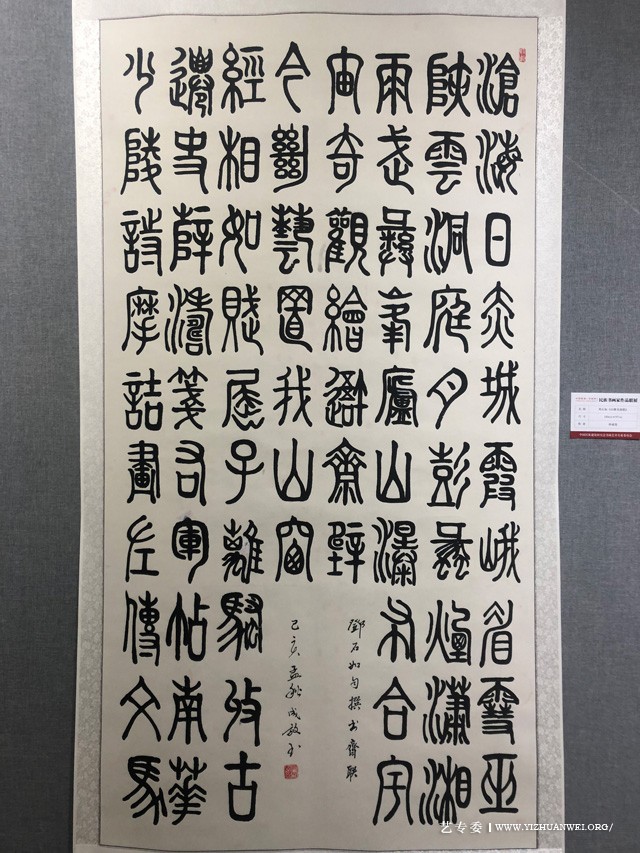 滄海日赤城霞峨眉雪巫
陜雲洞庭月彭蠡煙瀟湘
雨武彝峯廬山瀑布合宇
宙奇觀繪吾齋壁
鄧石如自撰書齋聯
少陵詩摩詰畫左傳文馬
遷史薛濤箋右軍帖南華
經相如賦屈子離騷收古
今絕藝置我山窗
己亥孟秋成敏
民族书画家作品联展
艺专委 | WWW.YIZHUANWEI.ORG/